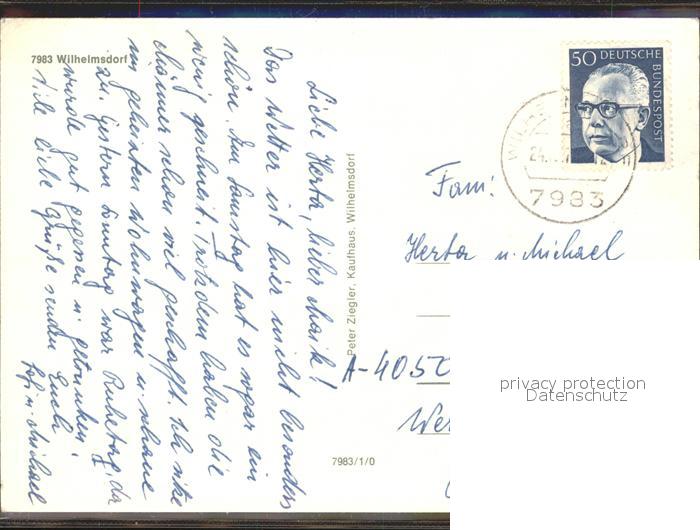 7983 Wilhelmsdorf
Liebe Herta, lieber Maik!
Das Wetter ist hier nicht besonders
schön. Am Samstag hat es sogar ein
wenig geschneit. Trotzdem haben die
Männer schon viel geschafft. Ich sitze
im geheizten Wohnwagen u. schaue
zu. Gestern Sonntag war Ruhetag, da
wurde gut gegessen u. getrunken!
Viele liebe Grüße senden Euch
u. Michael
Peter Ziegler, Kaufhaus, Wilhelmsdorf
7983/1/0
50 DEUTSCHE BUNDESPOST
7983
Fam:
Herta u. Michael
A-4050
privacy protection
Datenschutz